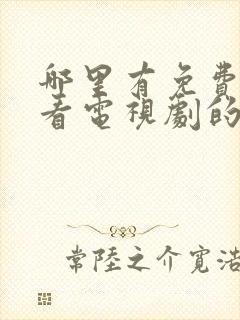 哪里有免費
看電視劇的
常陸之介寬浩